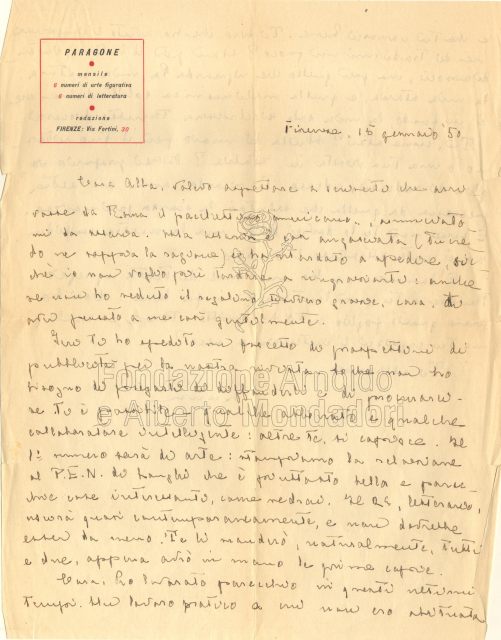 PARAGONE
mensile
6 numeri di arte figurativa
6 numeri di letteratura
redazione
FIRENZE: Via Fortini, 30
Firenze, 15 gennaio '50
Cara Alba, volevo aspettare a scriverti che arri
vasse da Roma il pacchettino americano, annunciato
mi da
ma è così angosciata (tu cre
do ne sappia la ragione) ha tardato a spedire, sic
chè io non voglio più tardare a ringraziarti: anche
se non ho veduto il regalino, davvero grazie, cara, di
aver pensato a me così gentilmente.
Ieri ti ho spedito un pacchetto di prospettini di
pubblicità per la nostra rivista, e non ho
bisogno di pregarti di diffonderli e di procurarci
se ti è possibile qualche abbonato e qualche
collaboratore intelligente: oltre te, si capisce. Il
1° numero sarà di arte: stampiamo la relazione
al P.E.N. di Longhi che è piuttosto bella e parec
chie cose interessanti, come vedrai. Il 2°, letterario,
uscirà quasi contemporaneamente, e non dovrebbe
esser da meno. Te li manderò, naturalmente, tutti
e due, appena avrò in mano le prime copie.
Cara, ho lavorato parecchio in questi ultimi
tempi. Un lavoro pratico a cui non ero abituata
Fondazione Arnoldo
e Alberto Mondadori